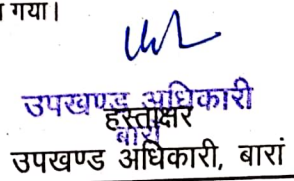 गया।
उपखण्ड अधिकारी
हस्ताक्षर
बारां
उपखण्ड अधिकारी, बारां